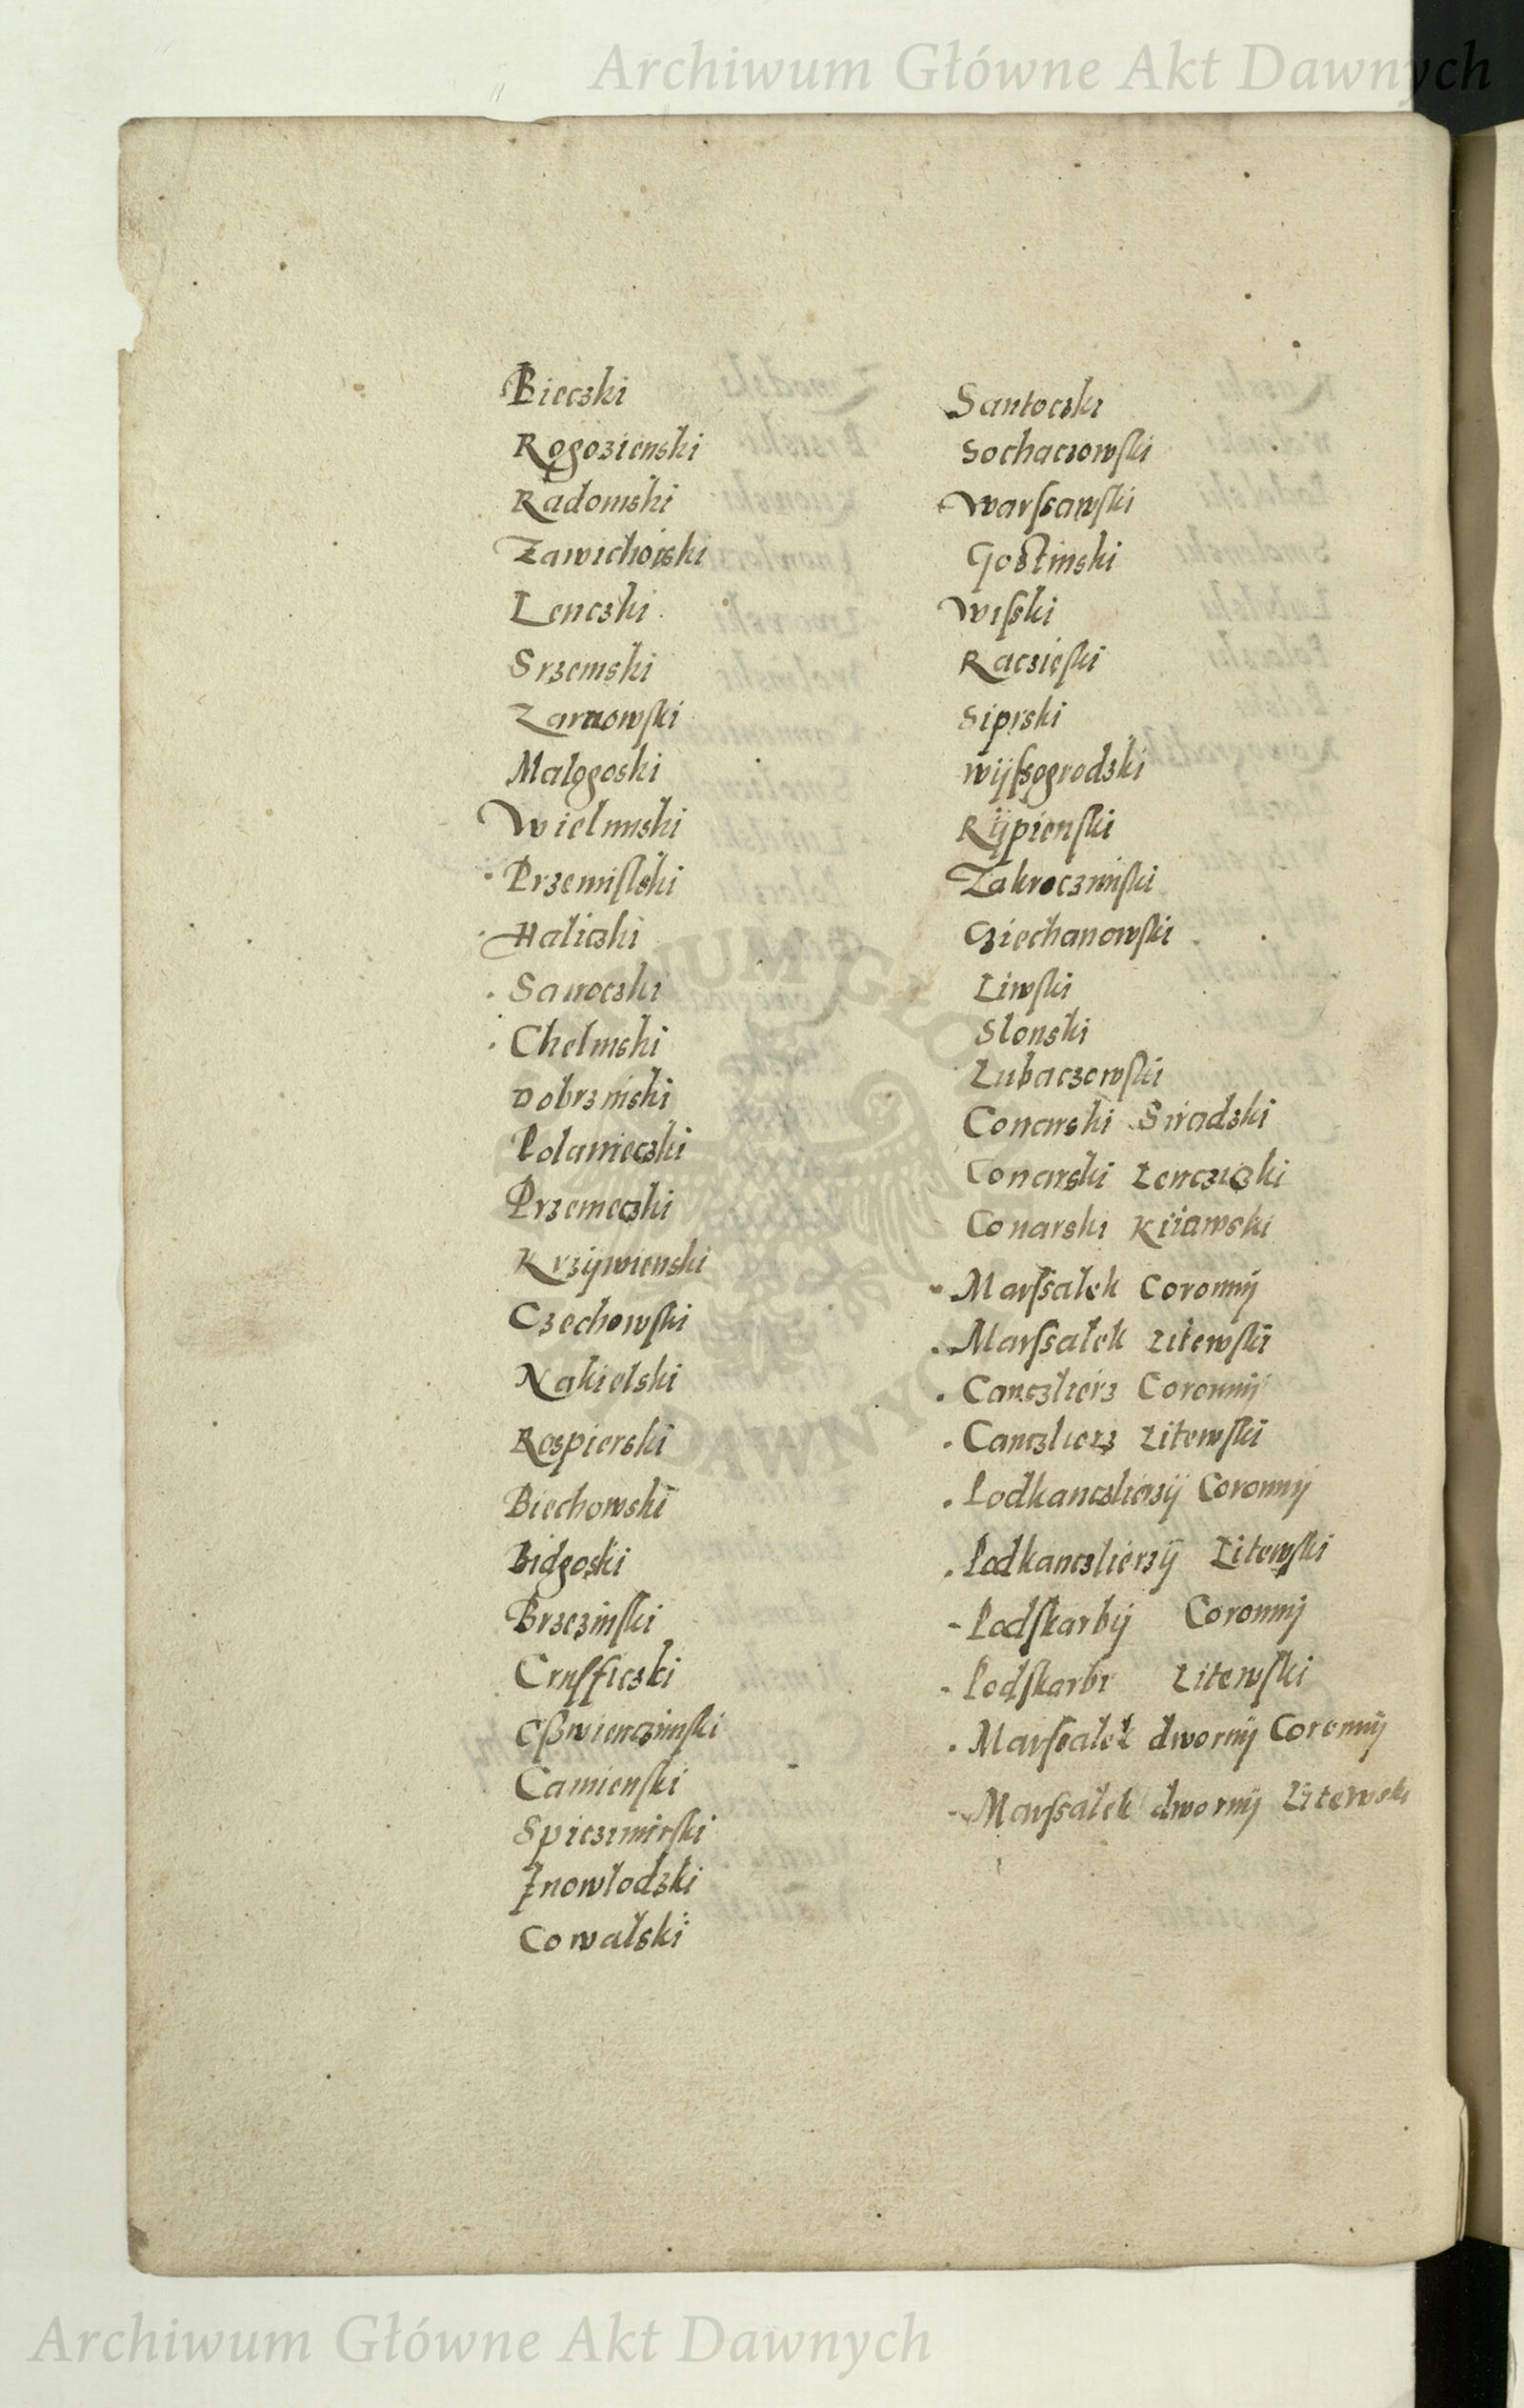 Archiwum Główne Akt Dawnych
Bieczki
Rogozienski
Radomski
Zawichoiski
Lenczki
Srzemski
Zarnowski
Malogoski
Wielunski
Przemislski
Haliczki
Sanoczki
Chelmski
Dobrzinski
Polanieczki
Przemeczki
Krzÿwienski
Czechowski
Nakielski
Rospierski
Biechowski
Bidgoski
Brzezinſki
Cruſficzki
Oſswienczimſki
Camienſki
Spiczimirſki
Jnowlodzki
Cowalski
Santoczki
Sochaczowſki
Warſsawſki
Gostinski
Wiſski
Raczieſki
Siprski
Wÿſsogrodzki
Rÿpienſki
Zakroczimſki
Cziechanowſki
Liwſki
Slonski
Lubaczowſki
Conarski Siradzki
Conarski Lencziczki
Conarski Kuiawski
Marſsalek Coronnÿ
Marſsalek Litewſki
Canczlierz Coronnÿ
Canczlierz Litewſki
Podkanczlierzÿ Coronnÿ
Podkanczlierzÿ Litewſki
Podſkarbÿ Coronnÿ
Podſkarbi Litewſki
Marſsalek dwornÿ Coronnÿ
Marſsalek dwornÿ Litewski
ARCHIWUM GŁÓWNE AKT DAWNYCH
Archiwum Główne Akt Dawnych